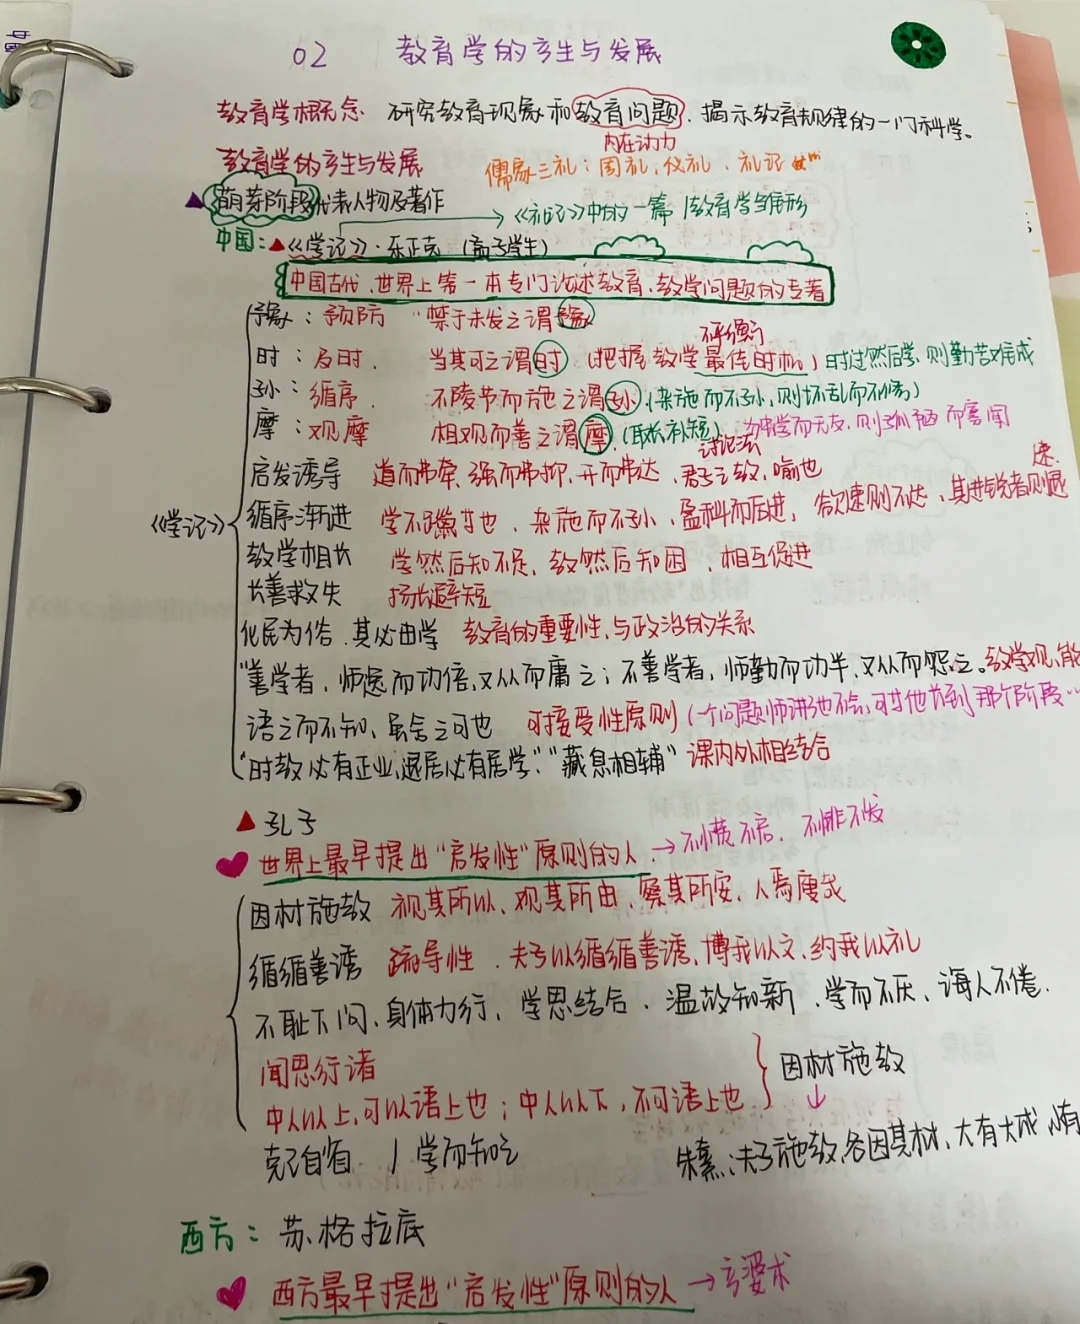 02 教育学的产生与发展
教育学概念 研究教育现象和教育问题,揭示教育规律的一门科学。
内在动力
教育学的产生与发展 儒家三礼:周礼,仪礼、礼记
萌芽阶段代表人物及著作 →《礼记》中的一篇 教育学雏形
中国:《学记》·乐正克(孟子学生)
中国古代、世界上第一本专门论述教育、教学问题的专著
豫:预防 "禁于未发之谓豫
时:及时. 当其可之谓时(把握教学最佳时机)时过然后学,则勤苦难成
孙:循序. 不陵节而施之谓孙(杂施而不孙,则坏乱而不修)
摩:观摩 相观而善之谓摩(取长补短)独学而无友,则孤陋而寡闻
讨论法
启发诱导 道而弗牵,强而弗抑,开而弗达,君子之教,喻也
《学记》
循序渐进 学不躐等也、杂施而不孙、盈科而后进,欲速则不达、其进锐者则退速.
教学相长 学然后知不足,教然后知困、相互促进
长善救失 扬长避短
化民为俗.其必由学 教育的重要性,与政治的关系
"善学者,师逸而功倍,又从而庸之;不善学者,师勤而功半,又从而怨之。教学观,能
语之而不知,虽舍之可也 可接受性原则(一个问题师讲他不会,可等他长到那个阶段…
"时教必有正业,退居必有居学""藏息相辅" 课内外相结合
孔子
世界上最早提出"启发性"原则的人.→不愤不启.不悱不发
因材施教 视其所以,观其所由,察其所安,人焉廋哉
循循善诱 疏导性.夫子以循循善诱,博我以文,约我以礼
不耻下问、身体力行,学思结合、温故知新、学而不厌、诲人不倦.
闻思行诸
中人以上,可以语上也;中人以下,不可语上也 因材施教
↓
克己自省 学而知之 朱熹:夫子施教,各因其材,大有大成,
西方:苏格拉底
西方最早提出"启发性"原则的人→产婆术